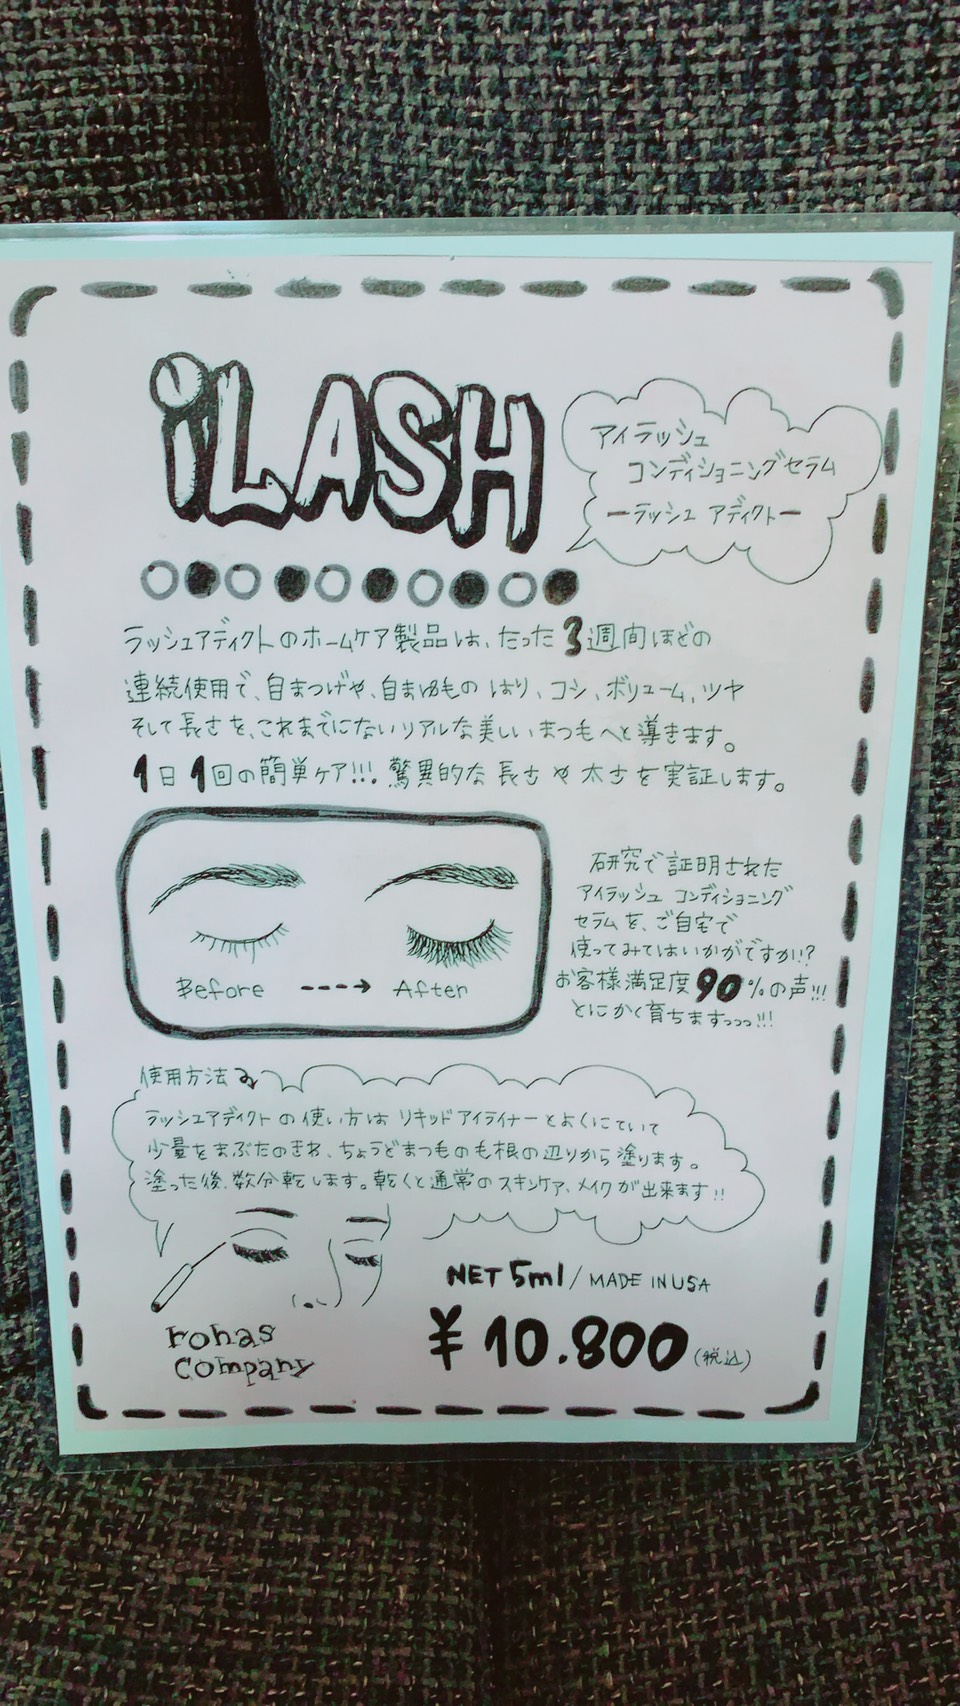 iLASH
アイラッシュ
コンディショニングセラム
ーラッシュ アディクトー
ラッシュアディクトのホームケア製品は、たった3週間ほどの
連続使用で、自まつげや、自まゆものはり、コシ、ボリューム、ツヤ
そして長さを、これまでにないリアルな美しいまつもへと導きます。
1日1回の簡単ケア!!! 驚異的な長さや太さを実証します。
Before ----> After
研究で証明された
アイラッシュ コンディショニング
セラムを、ご自宅で
使ってみてはいかがですか!!?
お客様満足度90%の声!!!
とにかく育ちますっっっ!!!
使用方法
ラッシュアディクトの使い方はリキッドアイライナーとよくにていて
少量をまぶたのきわ、ちょうどまつものも根の辺りから塗ります。
塗った後、数分乾します。乾くと通常のスキンケア、メイクが出来ます!!
NET 5ml/ MADE IN USA
rohas
Company
¥10.800(税込)